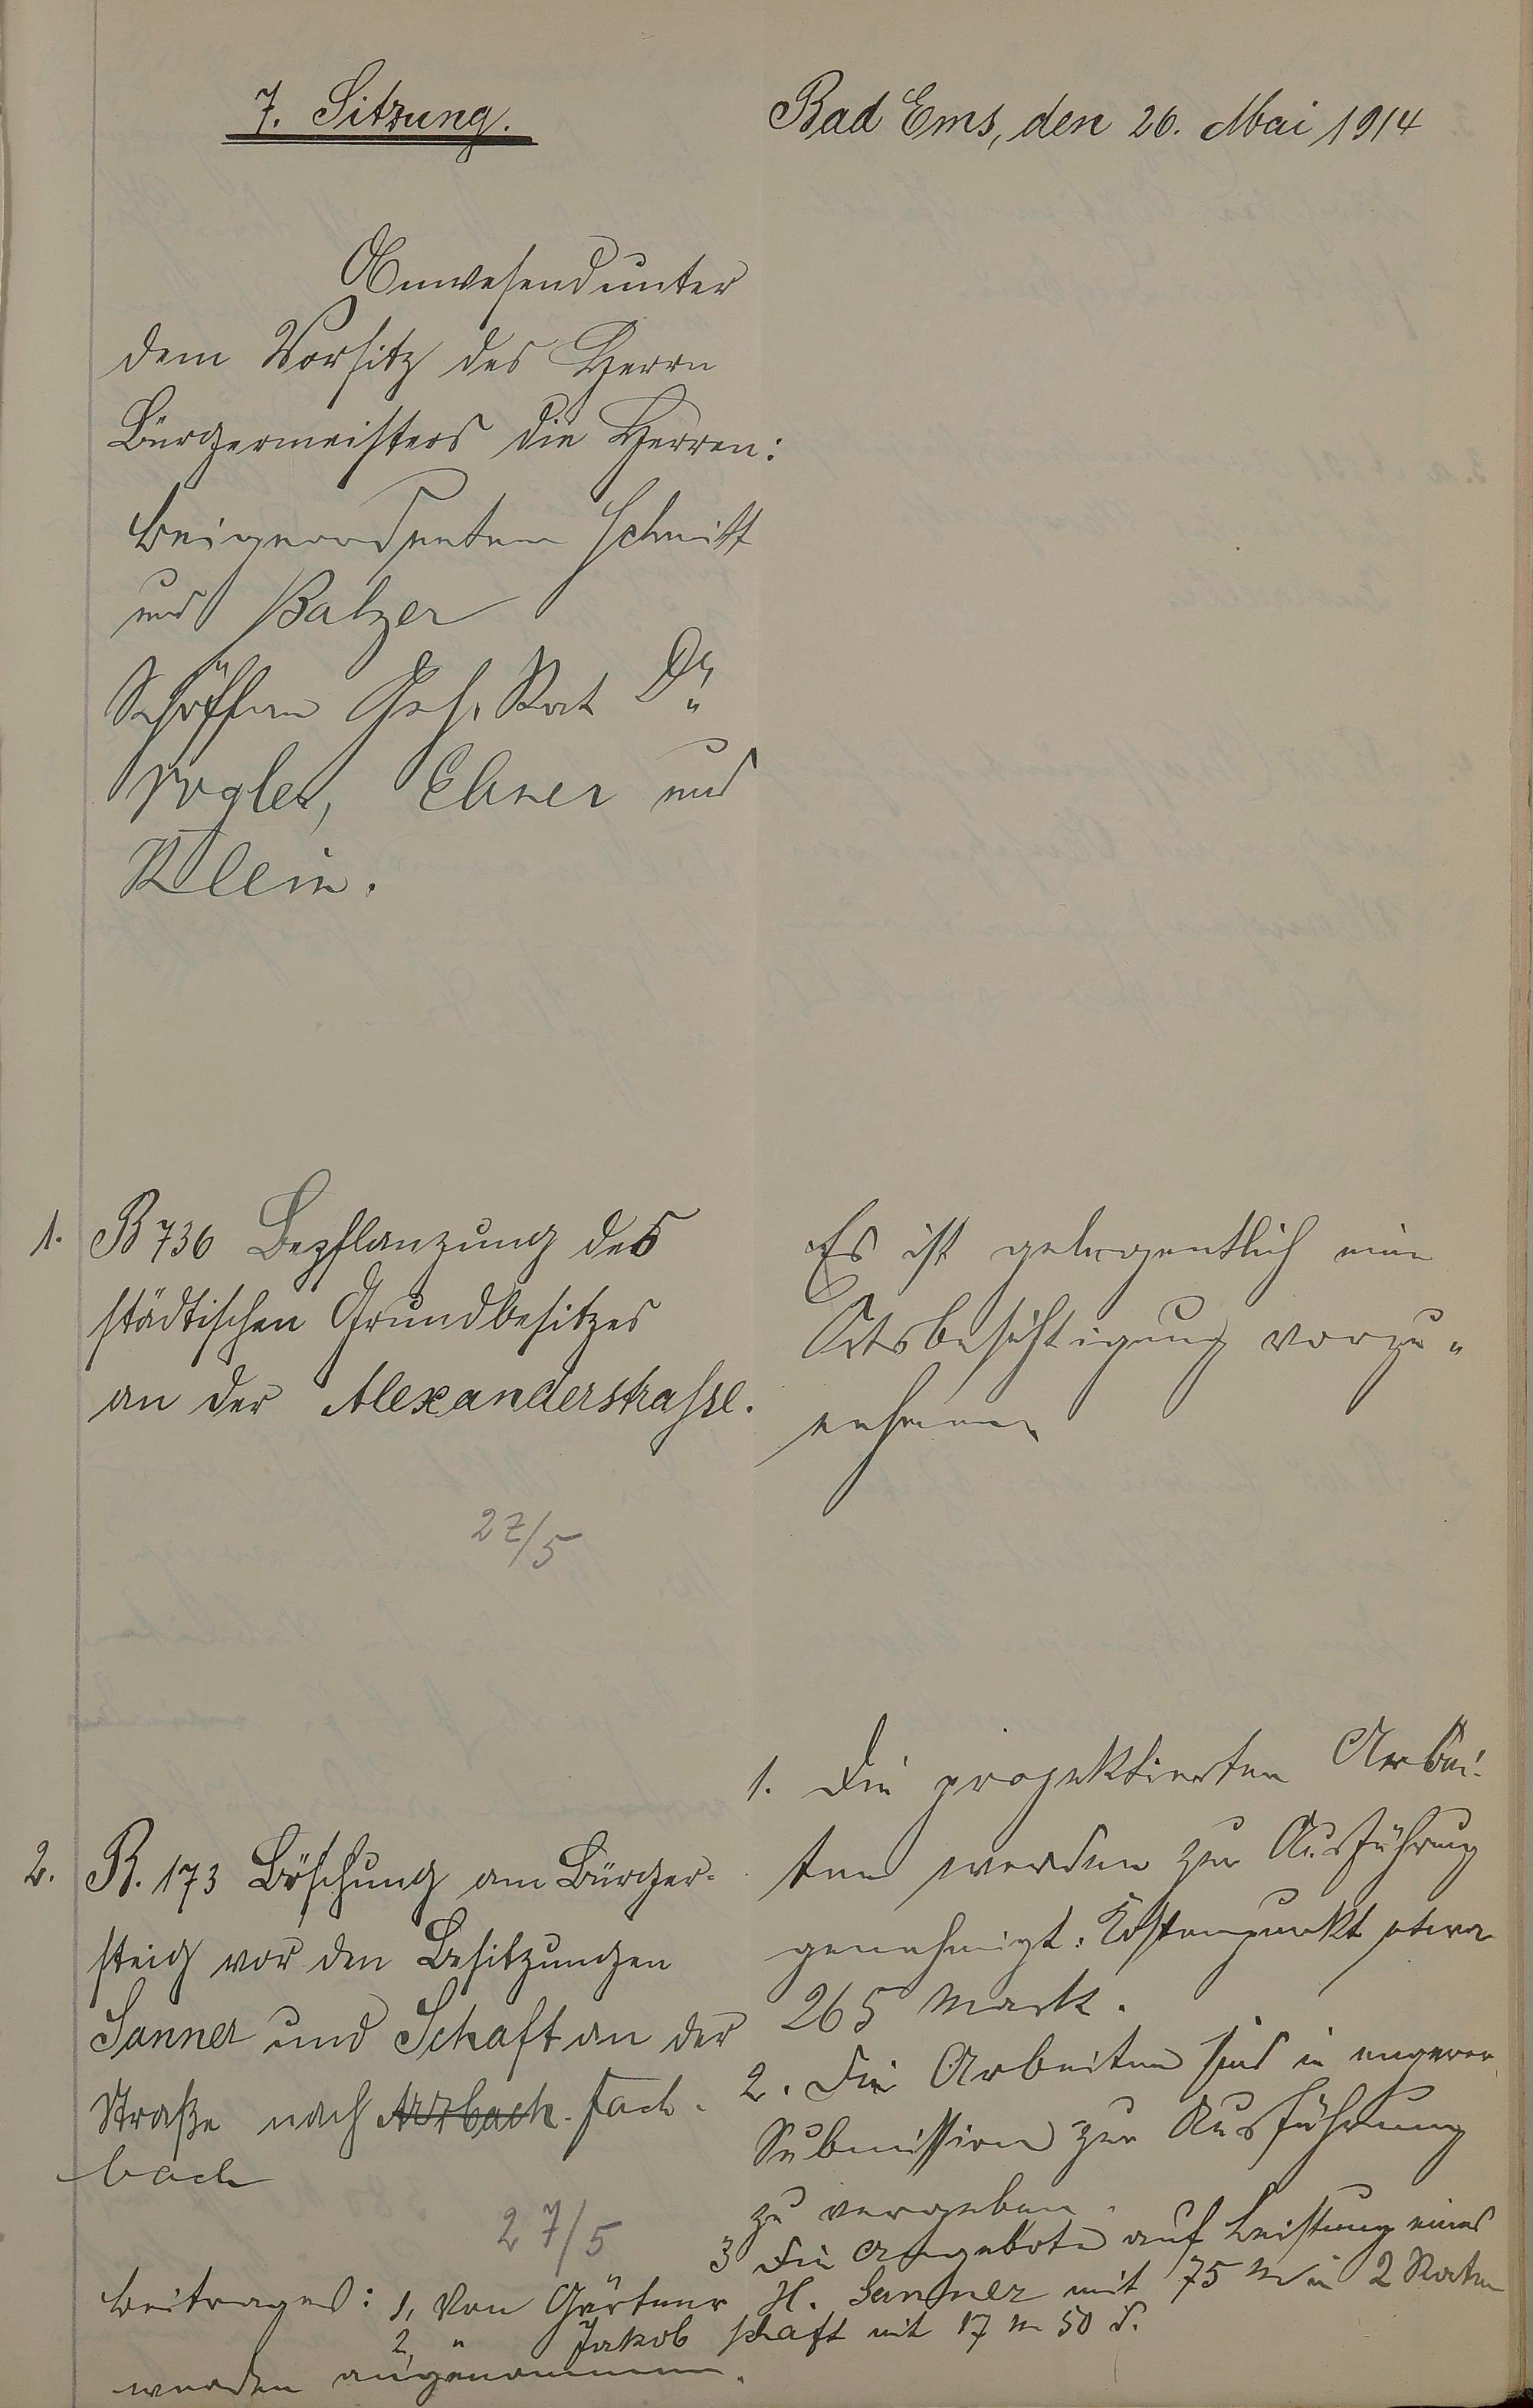 7. Sitzung.
Bad Ems, den 26. Mai 1914
Anwesend unter
dem Vorsitz des Herrn
Bürgermeisters die Herren:
Beigeordneten Schmitt
und Balzer
Schöffen Geh. Rat Dr.
Vogler, Ebner und
Klein.
1. B 736 Bepflanzung des
städtischen Grundbesitzes
an der Alexanderstrasse.
27/5
Es ist gelegentlich eine
Ortsbesichtigung vorzu-
nehmen
2. B. 173 Böschung am Bürger-
steig vor den Besitzungen
Sanner und Schaft an der
Straße nach Arzbach. Fach-
bach
27/5
1. Die projektierten Arbei-
ten werden zur Ausführung
genehmigt. Kostenpunkt etwa
265 Mark.
2. Die Arbeiten sind in engerer
Submission zur Ausführung
zu vergeben.
3 Die Angebote auf Leistung eines
Beitrages: 1, von Gärtner H. Sanner mit 75 M in 2 Raten
2, " Jakob Schaft mit 17 M 50 d.
werden angenommen.